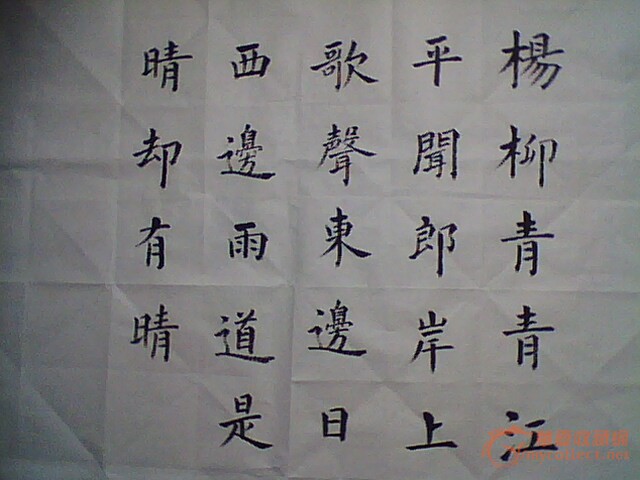 楊柳青青江
平聞郎岸上
歌聲東邊日
西邊雨道是
晴却有晴